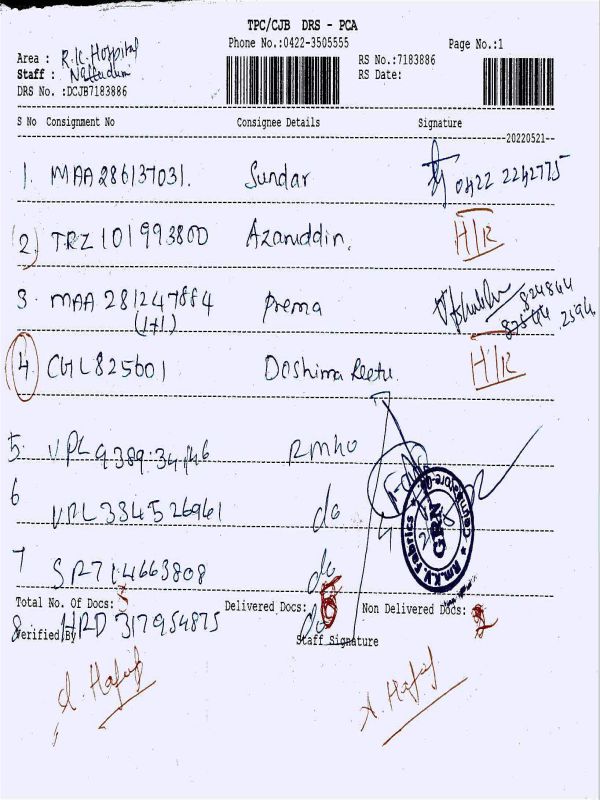 TPC/CJB DRS - PCA
Phone No.:0422-3505555
Page No.:1
Area : R.K. Hospital
Staff :
DRS No. :DCJB7183886
RS No.:7183886
RS Date:
S No Consignment No Consignee Details Signature
20220521
1. MAA 286137031. Sundar 0422 2242775
2) TRZ 101993800 Azaruddin. H/R
3. MAA 281247884 Prema 824844
(1+1) 2594
4 CGL825601 Doshima Reetu. H/R
5. VPL 938934146 RMHO
6 VPL 334526961 do
7 SR714663808 do
Total No. Of Docs: Delivered Docs: 6 Non Delivered Docs: 2
8. HRD 317954875 do
Verified By Staff Signature
Rm.K.V. Fabrics * Coimbatore * GRN
A. Hafaf A. Hafaf